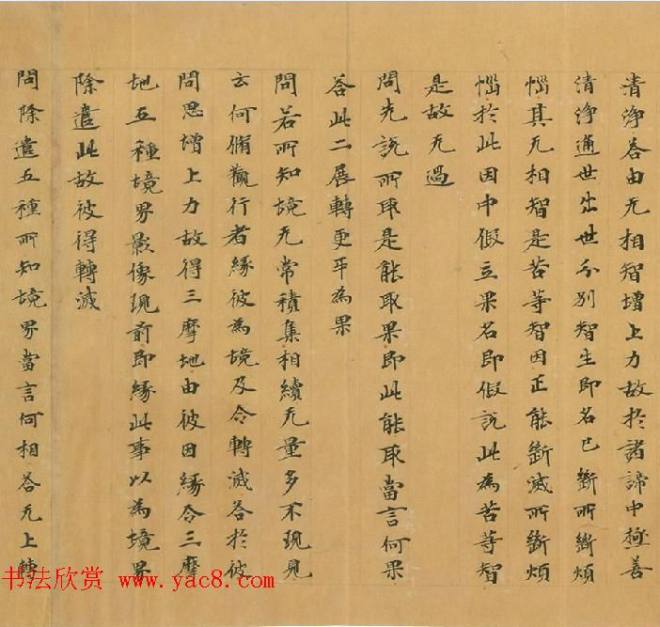 清淨荅由无相智增上力故於諸諦中極善
清淨通世出世分別智生即名已斷所斷煩
惱其无相智是苦等智因正能斷滅所斷煩
惱於此因中假立果名即假說此為苦等智
是故无過
問先說所取是能取果即此能取當言何果
荅此二展轉更平為果
問若所知境无常積集相續无量多不現見
云何脩觀行者緣彼為境及令轉滅荅於彼
問思增上力故得三摩地由彼因緣令三摩
地五種境界影像現前即緣此事以為境界
除遣此故彼得轉滅
問除遣五種所知境界當言何相荅无上轉
书法欣赏 www.yac8.com